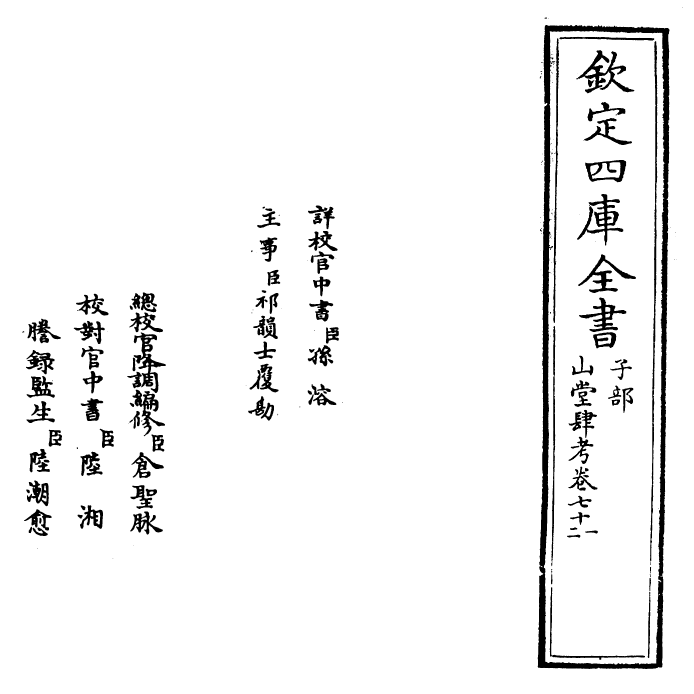 欽定四庫全書
子部
山堂肆考卷七十一二
詳校官中書臣孫溶
主事臣祁韻士覆勘
總校官降調編修臣倉聖脉
校對官中書臣陸湘
謄錄監生臣陸潮愈